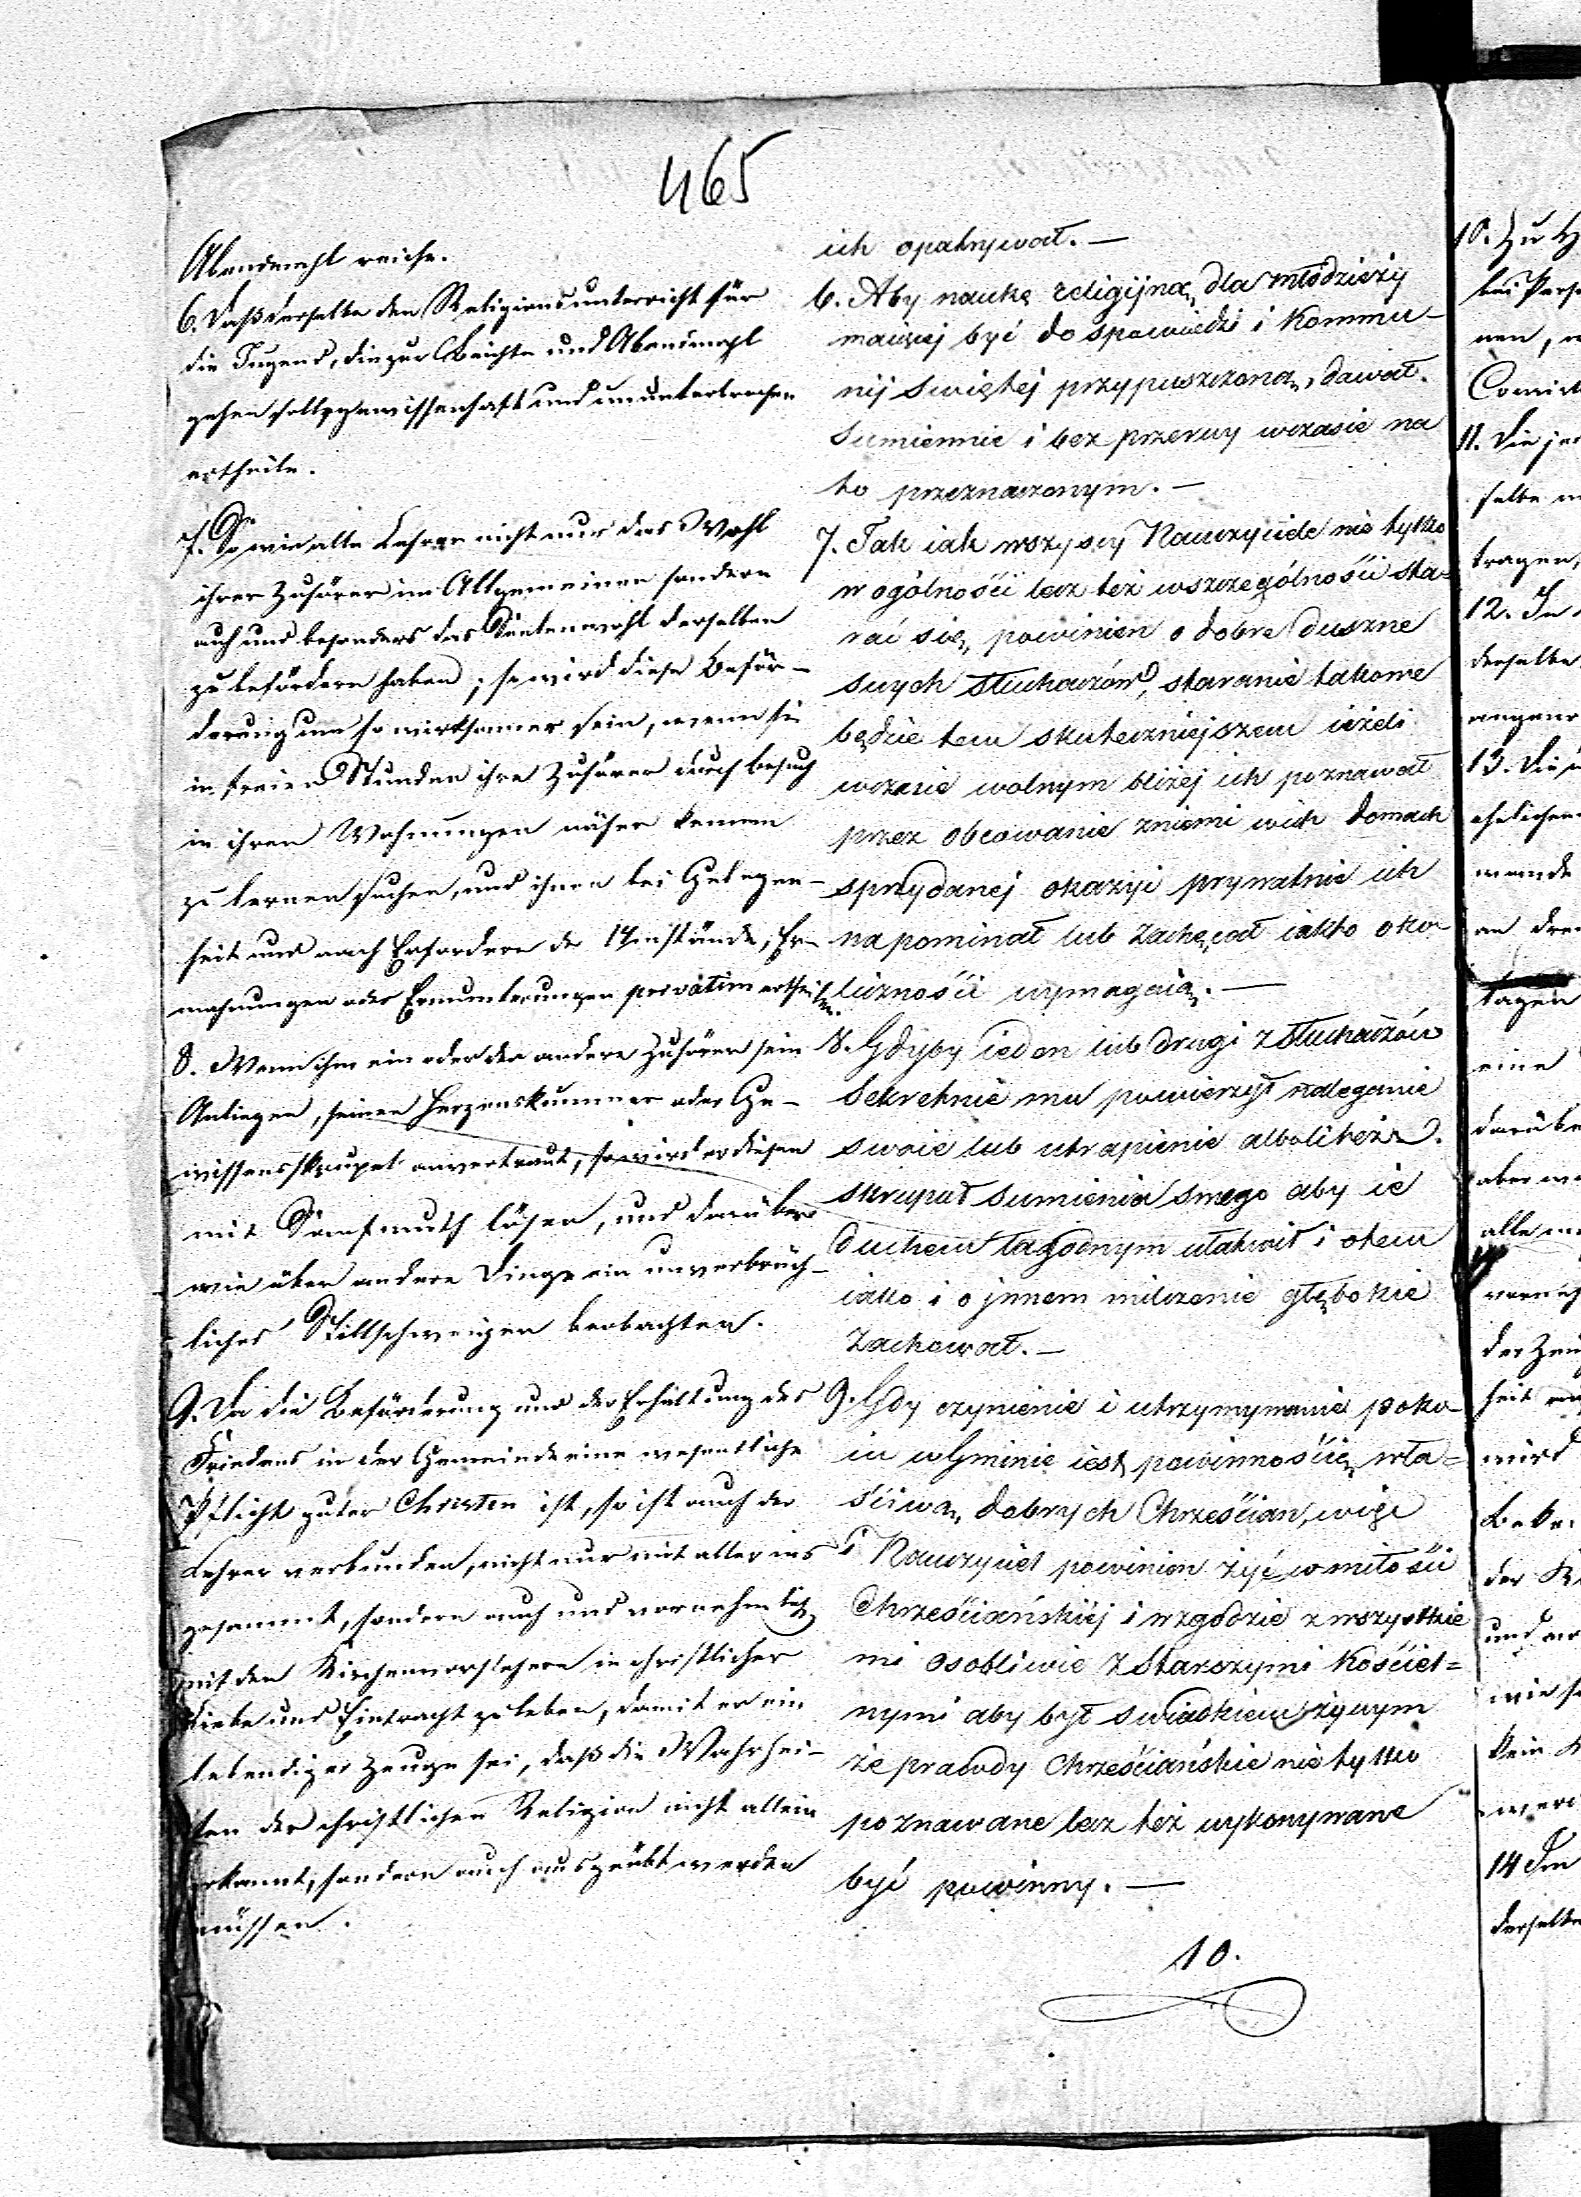 465
Abendmahl reiche.
6. Daß derselbe den Religionsunterricht für
die Jugend, die zur Beichte und Abendmahl
gehen soll, gewissenhaft und ununterbrochen
ertheile.
7. So wie alle Lehrer nicht nur das Wohl
ihrer Zuhörer im Allgemeinen sondern
auch und besonders das Seelenwohl derselben
zu befördern haben; so wird diese Beför-
derung um so wirksamer sein, wenn sie
in freien Stunden ihre Zuhörer durch besuch
in ihren Wohnungen näher kennen
zu lernen suchen, und ihnen bei Gelegen-
heit und nach Erfordern der Umstände, Er-
mahnungen oder Ermunterungen privatim ertheilen.
8. Wenn ihm ein oder der andere Zuhörer sein
Anliegen, seinen Herzenskummer oder Ge-
wissensskrupel anvertraut, so wird er diesen
mit Sanftmuth lösen, und darüber
wie über andere Dinge ein unverbrüch-
liches Stillschweigen beobachten.
9. Da die Beförderung und der Erhaltung des
Friedens in der Gemeinde eine wesentliche
Pflicht guter Christen ist, so ist auch der
Lehrer verbunden, nicht nur mit allen ins
gesammt, sondern auch und vornehmlich
mit den Kirchenvorstehern in christlicher
Liebe und Eintracht zu leben, damit er ein
lebendiger Zeuge sei, daß die Wahrhei-
ten der christlichen Religion nicht allein
erkannt, sondern auch ausgeübt werden
müssen.
ich opatrywał. —
6. Aby naukę religijną dla młodzieży
maiącej być do spowiedzi i Kommu-
nij Swiętej przypuszczoną, dawał.
Sumiennie i bez przerwy wczasie na
to przeznaczonym. —
7. Tak iak wszyscy Nauczyciele nie tylko
w ogólności lecz też wszczególności sta-
rać się powinien o dobre duszne
swych słuchaczów, staranie takowe
będzie tem skuteczniejszem ieżeli
wczasie wolnym bliżej ich poznawał
przez obcowanie zniemi wich domach
sprzydanej okazyi prywatnie ich
napominał lub zachęcał iakto oko-
liczności wymagaią. —
8. Gdyby ieden lub drugi z słuchaczów
Sekretnie mu powierzył naleganie
swoie lub utrapienie alboliteż
skrupuł sumienia swego aby ie
duchem łagodnym ułatwił i otem
iako i o jnnem milczenie głębokie
Zachował. —
9. Gdy czynienie i utrzymywanie poko-
iu wGminie iest powinnością wła=
ściwą dobrych Chrześcian, więc
i Nauczyciel powinien żyć wmiłości
Chrześciańskiéj i wzgodzie z wszystkie
mi osobliwie z Starszymi Kościel=
nymi aby był swiadkiem żywym
że prawdy Chrześciańskie nie tylko
poznawane lecz też wykonywane
być powinny. —
10.
10. Zu
bei Pers
nen,
11. Die
selbe
tragen,
12. In
derselbe
13. Die
ehelichen
an
tagen
eine
darübe
aber
alle
der
heit
wird
der
und
wie
kein
14
derselbe